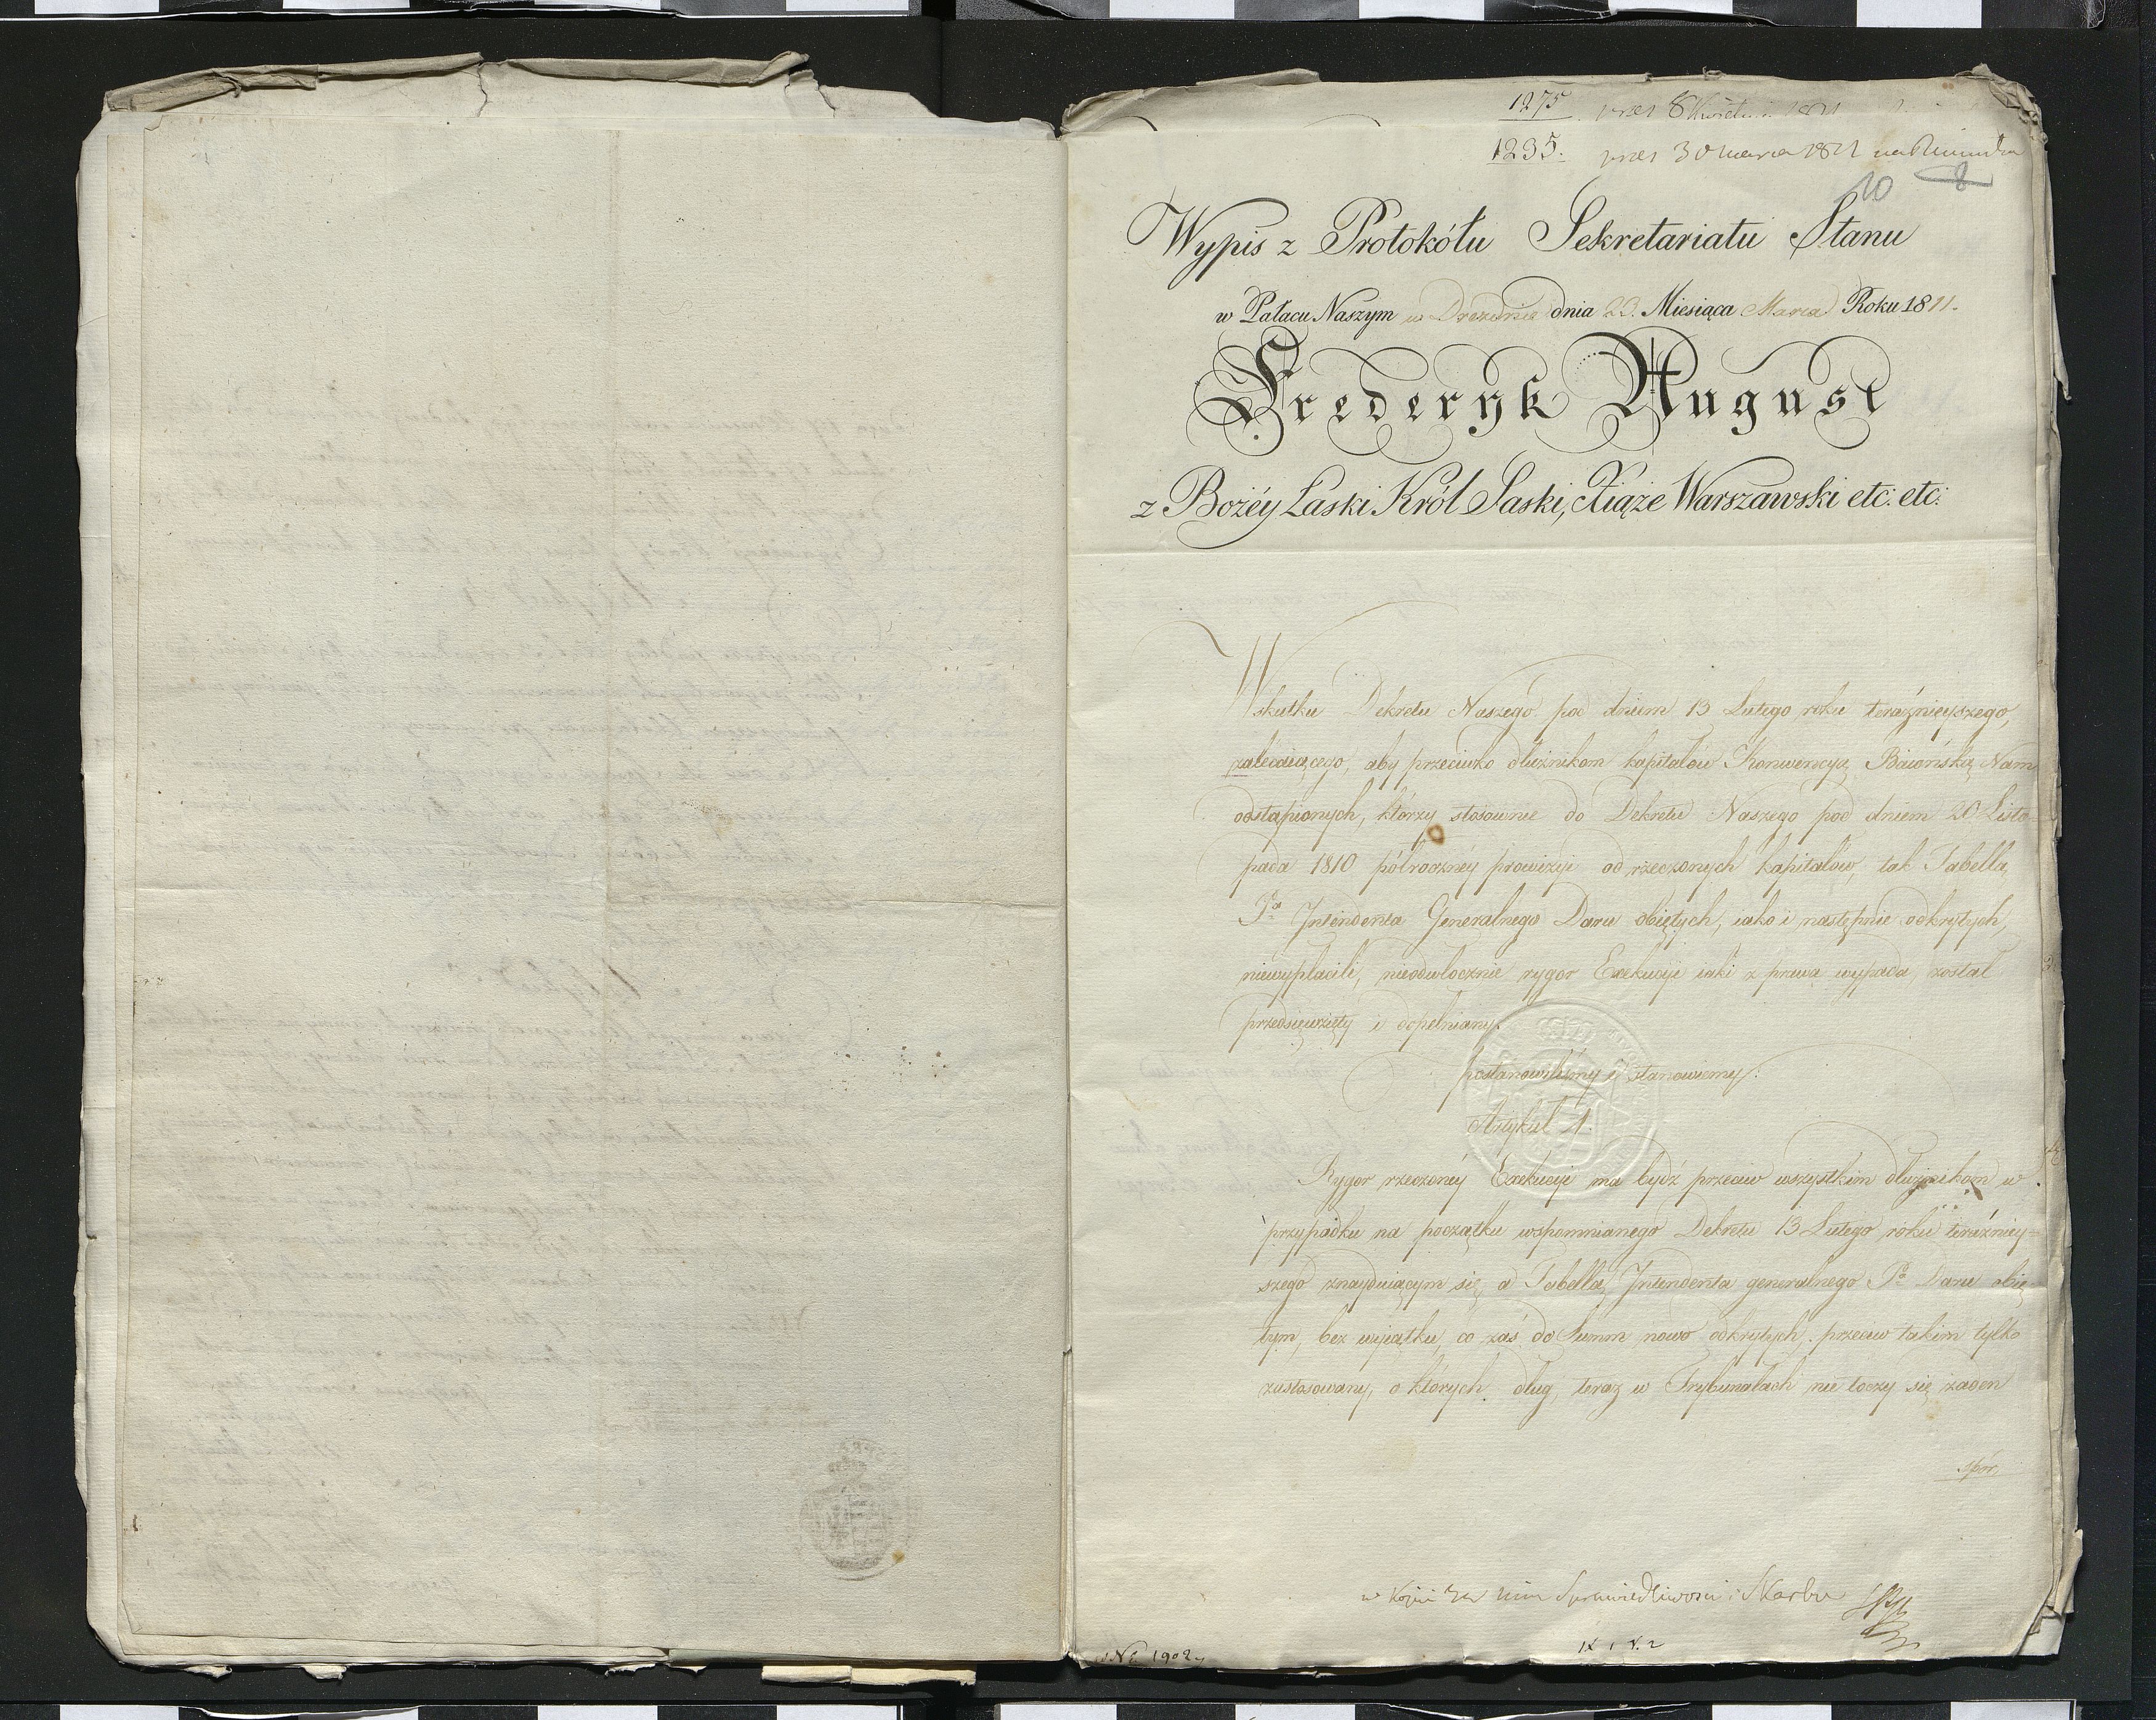 1275. pres 8 Kwietnia 1811
1235. pres 30 Marca 1811
10 8
Wypis z Protokółu Sekretariatu Stanu
w Pałacu Naszym w Dreznie dnia 23. Miesiąca Marca Roku 1811.
Frederyk August
z Bożéy Łaski Król Saski, Xiąże Warszawski etc: etc:
W skutku Dekretu Naszego pod dniem 13 Lutego roku teraźnieyszego,
zalecaiącego, aby przeciwko dłużnikom kapitałów Konwencyą Baiońską Nam
odstąpionych, którzy stosownie do Dekretu Naszego pod dniem 20 Listo
pada 1810 półroczney prowizyi od rzeczonych kapitałów, tak Tabellą
Pa Intendenta Generalnego Daru obiętych, iako i następnie odkrytych,
niewypłacili, nieodwłocznie rygor Exekucyi iaki z prawa wypada, został
przedsięwzięty i dopełniany.
postanowiliśmy i stanowiemy:
Artykuł 1.
Rygor rzeczoney Exekucyi ma bydź przeciw wszystkim dłużnikom w
przypadku na początku wspomnianego Dekretu 13 Lutego roku teraźniey=
szego znayduiącym się, a Tabellą Intendenta generalnego Pa Daru obię=
tym, bez wyiątku, co zaś do Summ nowo odkrytych, przeciw takim tylko
zastosowany, o których dług teraz w Trybunałach nie toczy się żaden
spór,
w Kopii dla Min Sprawiedliwości i Skarbu
N 1902